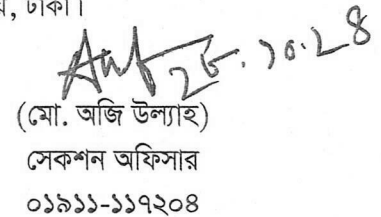 , ঢাকা।
২৮.১০.২৪
(মো. অজি উল্যাহ)
সেকশন অফিসার
০১৯১১-১১৭২০৪